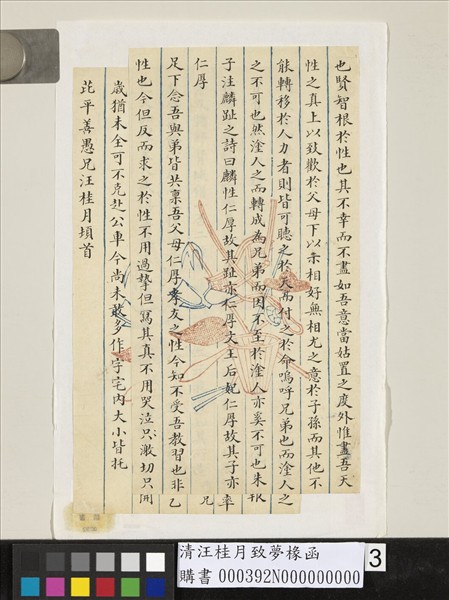 也賢智根於性也其不幸而不盡如吾意當姑置之度外惟盡吾天
性之真上以致歡於父母下以示相好無相尤之意於子孫而其他不
能轉移於人力者則皆可聽之於天而付之於命嗚呼兄弟也而塗人之
之不可也然塗人之而轉成為兄弟而因不至於塗人亦奚不可也朱
子注麟趾之詩曰麟性仁厚故其趾亦仁厚文王后妃仁厚故其子亦
仁厚 兄
足下念吾與弟皆共稟吾父母仁厚孝友之性今知不受吾教習也非
性也今但反而求之於性不用過摯但寫其真不用哭泣只激切只
歲猶未全可不克赴公車今尚未敢多作字宅內大小皆托
芘平善愚兄汪桂月頓首
清汪桂月致夢椽函
購書 000392N000000000
3